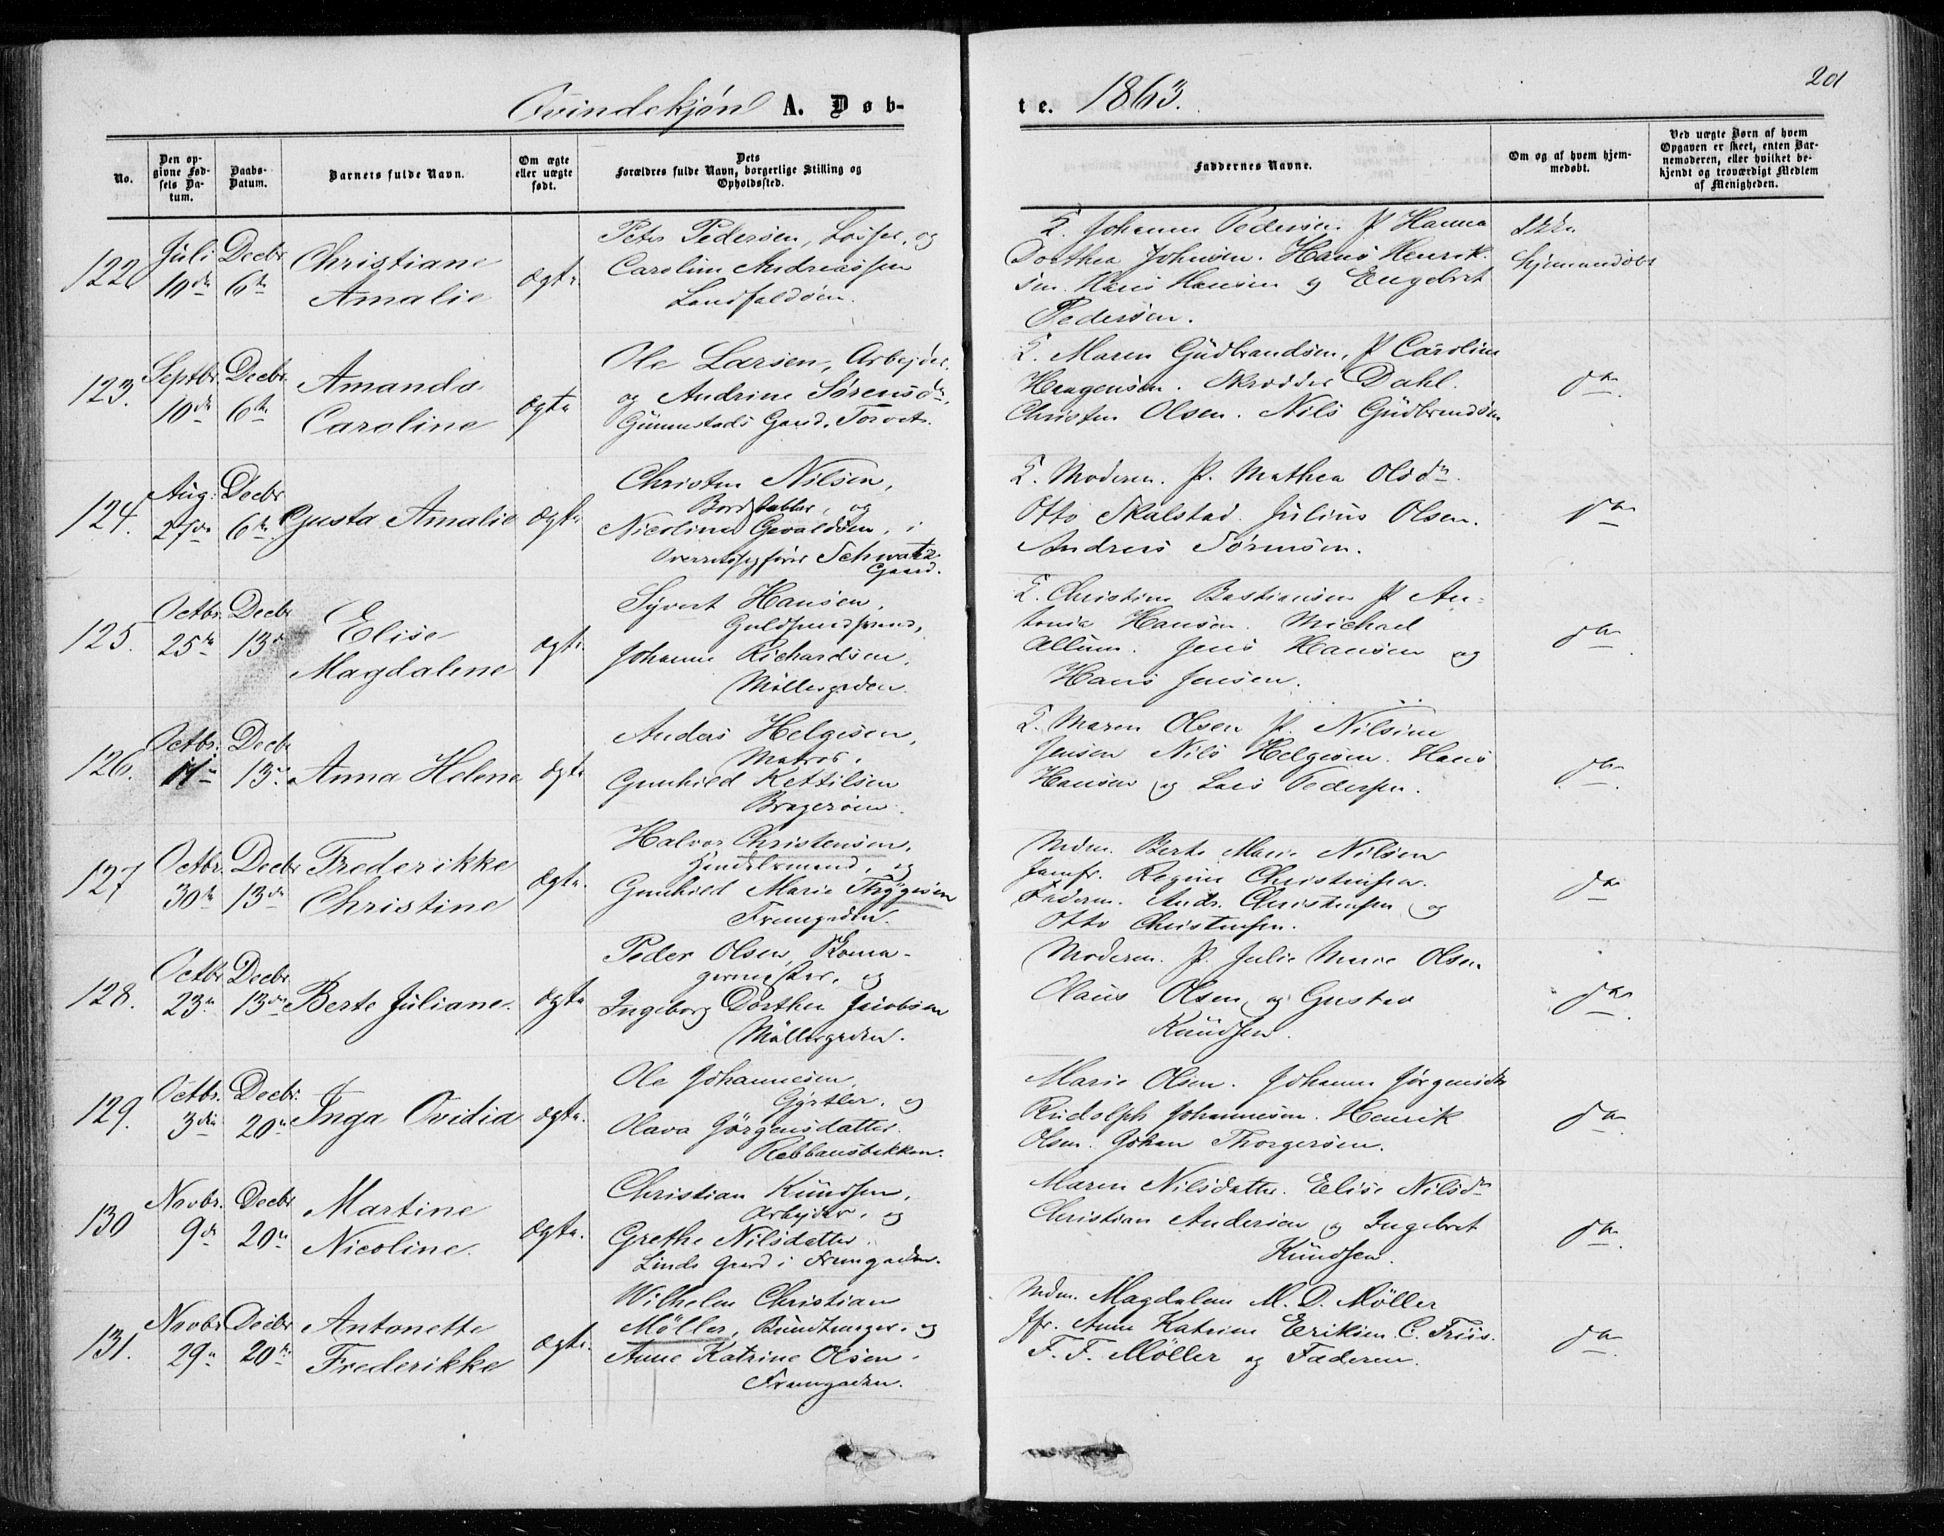 Qvindekjøn A. Døb-
No.
Den op-
givne Fød-
sels Da-
tum.
Daabs-
Datum.
Barnets fulde Navn.
Om ægte
eller uægte
født.
Dets
Forældres fulde Navn, borgerlige Stilling og
Opholdssted.
122 Juli 10de Decbr 6te Christiane Amalie ægte
Peter Pedersen, og
Caroline Andreassen
Landfaldøen.
123. Septbr. 10de Decbr 6te Amanda Caroline ægte
Ole Larsen, Arbejder,
og Andrine Sørensdr,
Gunnestads Gaard, Torvet.
124. Aug. 27de Decbr 6te Gusta Amalie ægte
Christen Nilsen,
Bordstabler, og
Nicoline
Overretssagfører Schwartz
Gaard.
125. Octbr. 25de Decbr 13de Elise Magdalene ægte
Syvert Hansen,
Johanne Richardsen,
Møllergaden.
126. Octbr. 11te Decbr 13de Anna Helene ægte
Anders Helgesen,
Matros,
Gunhild Kettilsen
Bragerøen.
127 Octbr. 30te Decbr 13de Frederikke Christine ægte.
Halvor Christensen,
Handelsmand, og
Gunhild Marie Thygesen
Framgaden.
128. Octbr 23de Decbr. 13de Berte Juliane. ægte
Peder Olsen, Koma-
germester, og
Ingeborg Dorthea Jacobsen
Møllergaden.
129. Octbr. 3die Decbr. 20de Inga Ovidia ægte.
Ole Johannesen,
Gjørtler, og
Olava Jørgensdatter.
Kobbausbakken.
130 Novbr. 9de Decbr 20de Martine Nicoline. ægte.
Christian Knudsen,
Arbejder, og
Grethe Nilsdatter.
Linds Gaard i Framgaden.
131. Novbr 29de Decbr 20de Antonette Frederikke ægte.
Wilhelm Christian
Møller, Bundtmager, og
Anne Katrine Olsen.
Framgaden.
te. 1863.
Faddernes Navne.
Om og af hvem hjem-
medøbt.
Ved uægte Børn af hvem
Opgaven er skeet, enten Bar-
nemoderen, eller hvilket be-
kjendt og troværdigt Medlem
af Menigheden.
K. Johanne Pedersen. P. Hanna Ikke
Dorthea Johnsen. Hans Henrik- hjemmedøbt
sen. Hans Hansen og Engebret
Pedersen.
K. Maren Gudbrandsen, P. Caroline
Haagensen. Skrædder Dahl. do
Christen Olsen. Nils Gudbrandsen
K. Moderen. P. Mathea Olsdr.
Otto Skalstad. Julius Olsen. do
Andreas Sørensen.
K. Christine Bastiansen P. An-
tonia Hansen. Michael
Allum. Jens Hansen og do
Hans Jensen.
K. Maren Olsen P. Nilsine
Jensen Nils Helgesen. Hans
Hansen og Lars Pedersen. do
Mdm. Berte Marie Nilsen
Jomfr. Regine Christensen.
Faderen. Andr. Christensen og do
Otto Christensen.
Moderen. P. Julie Marie Olsen
Olaus Olsen og Gustav do
Knudsen.
Marie Olsen. Johanne Jørgensdr
Rudolph Johannesen. Henrik do
Olsen. Johan Thorgersen.
Maren Nilsdatter. Elise Nilsdr
Christian Andersen og Ingebret do
Knudsen.
Mdm. Magdalene M. D. Møller
Jfr. Anne Katrine Eriksen. C. Friis. do
F. F. Møller og Faderen.